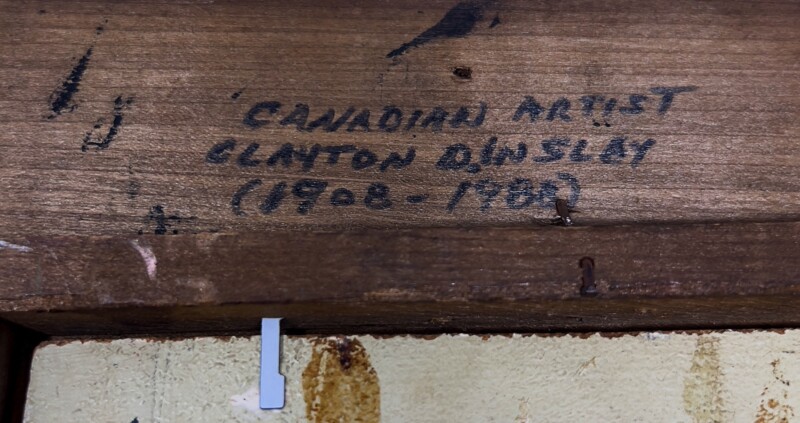 CANADIAN ARTIST
CLAYTON D. INSLEY
(1908 - 1988)